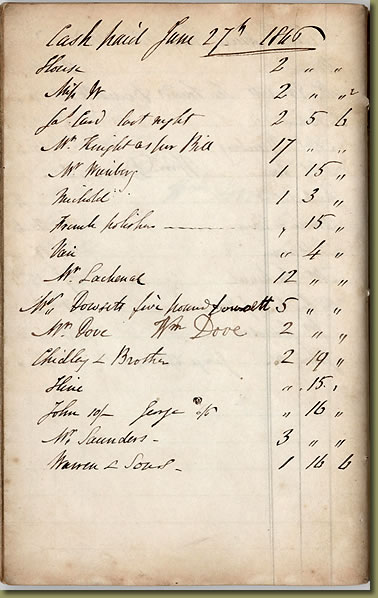 Cash paid June 27th 1846
House 2 " "
Miss W 2 " "
Jas Card last night 2 5 6
Mr Knight as per Bill 17 " "
Mr Weinberg 1 15 "
Nickold 1 3 "
French polisher — , 15 "
Vain " 4 "
Mr Lachenal 12 " "
Mrs Dowsett five pound Dowsett 5 " "
Mr Dove Wm Dove 2 " "
Chidley & Brother 2 19 "
Hine " 15 "
John 10/- George 6/- " 16 "
Mr Saunders - 3 " "
Warren & Sons - 1 16 6